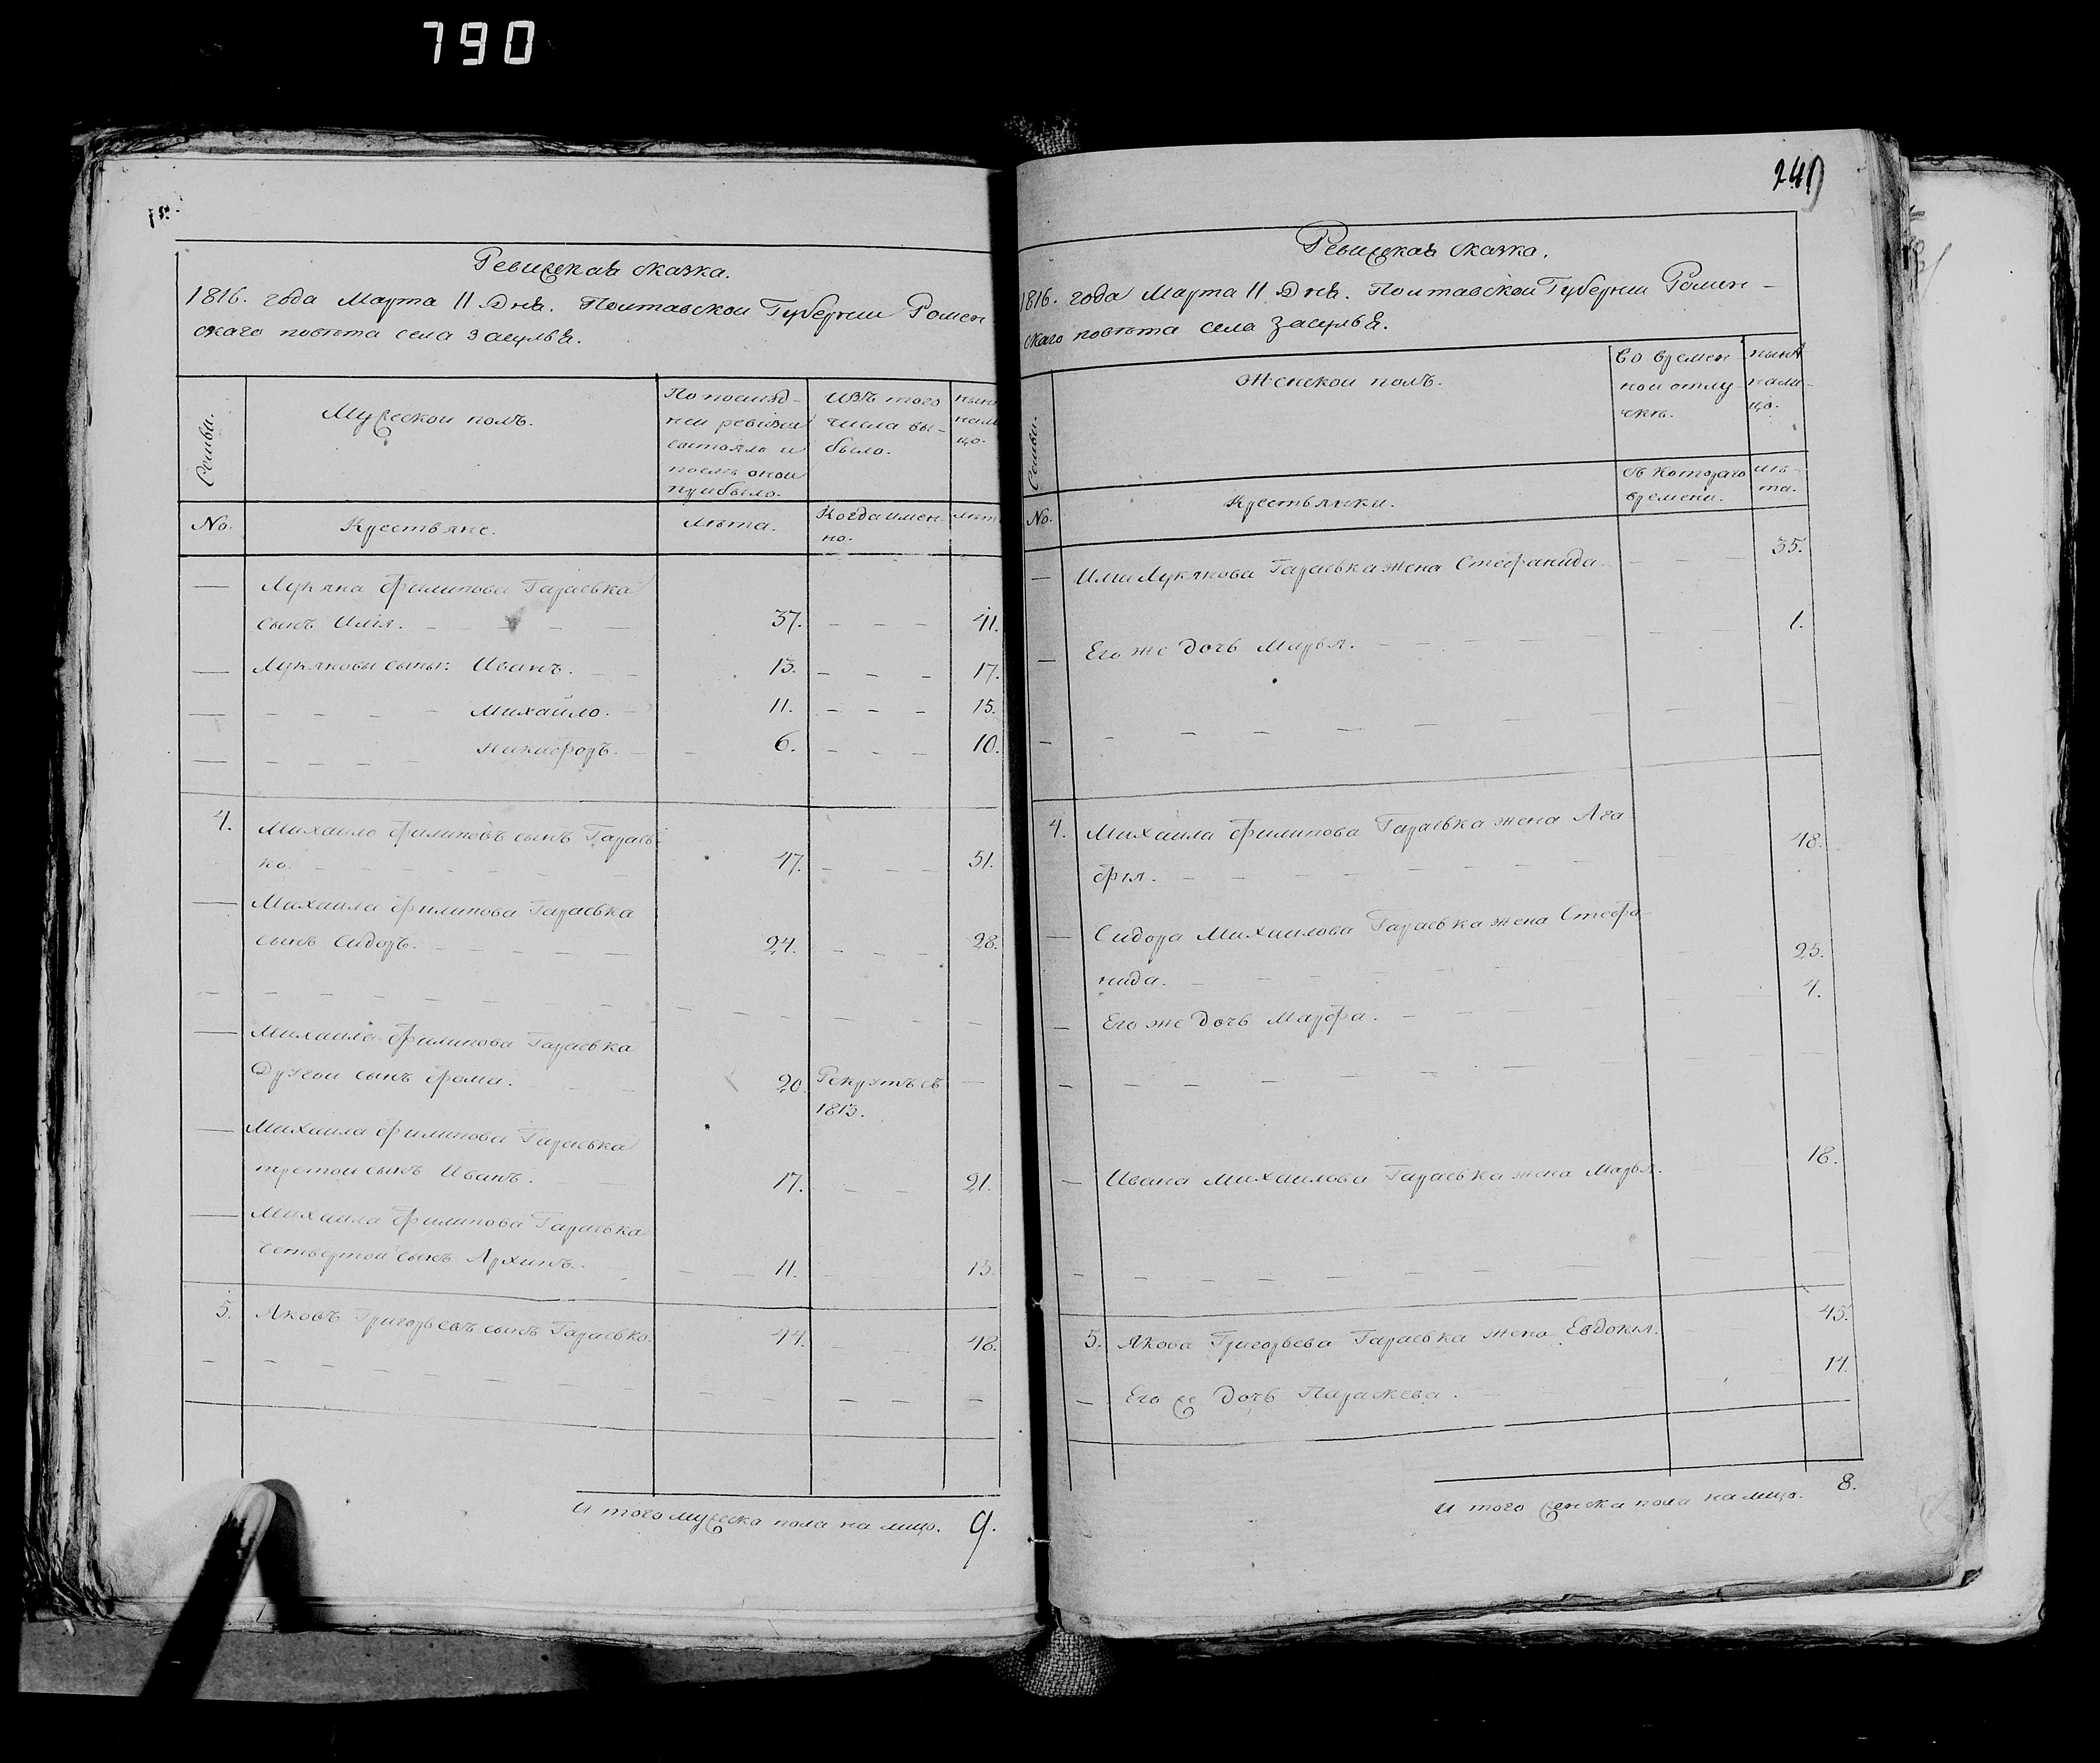 790
Ревизская сказка.
1816. года Марта 11 Дня. Полтавской Губернии Ромен
скаго повѣта села Засулья.
Семьи.
Мужеской полъ.
По послѣд-
ней ревизіи
состояло и
послѣ оной
прибыло.
Изъ того
числа вы-
было.
нынѣ
нали
цо.
No.
Крестьяне.
Лѣта.
Когда имен-
но.
лѣт
Лукяна Филипова Гараевка
сынъ Илія. 37. 41.
Лукяновы сыны: Иванъ. 13. 17.
Михайло. 11. 15.
Никифоръ. 6. 10.
4. Михайло Филиповъ сынъ Гараев-
ко. 47. 51.
Михайла Филипова Гараевка
сынъ Сидоръ. 24. 28.
Михайла Филипова Гараевка
Другой сынъ Фома. 20. Рекрутъ съ
1813.
Михайла Филипова Гараевка
третой сынъ Иванъ. 17. 21.
Михайла Филипова Гараевка
четвертой сынъ Архипъ. 11. 15.
5. Яковъ Григорьевъ сынъ Гараевко. 44. 48.
И того мужеска пола на лицо. 9.
240
Ревизская сказка.
1816. года Марта 11 Дня. Полтавской Губернии Ромен-
скаго повѣта села Засулья.
Семьи.
Женской полъ.
Во времен
ной отлу-
чкѣ.
нынѣ
нали-
цо.
No.
Крестьянки.
съ Котораго
времени.
лѣ-
та.
Ильи Лукянова Гараевка жена Стефанида. 35.
Его же дочь Марья. 1.
4. Михайла Филипова Гараевка жена Ага
фия. 48.
Сидора Михайлова Гараевка жена Стефа-
нида. 25.
Его же дочь Марфа. 4.
Ивана Михайлова Гараевка жена Марья. 18.
5. Якова Григорьева Гараевка жена Евдокия. 45.
Его же дочь Параскева. 14.
И того женска пола на лицо. 8.